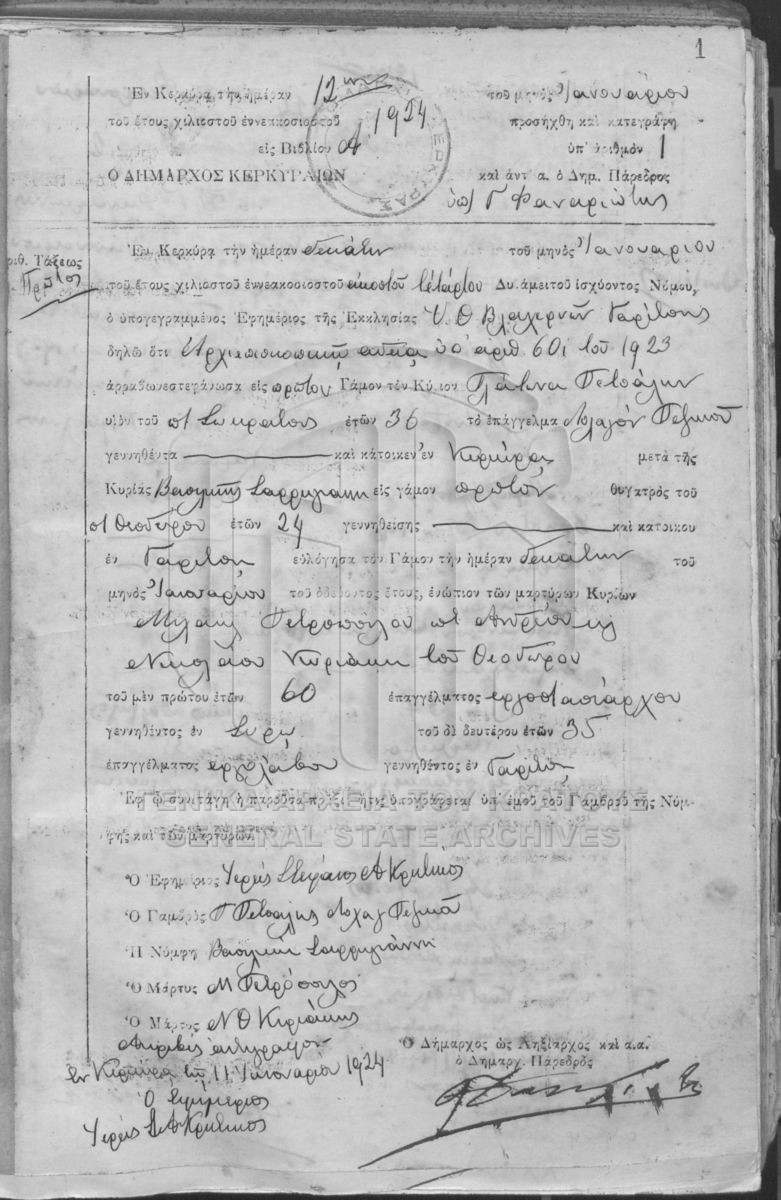 1
Ἐν Κερκύρα τὴν ἡμέραν 12ην τοῦ μηνὸς Ἰανουαρίου
τοῦ ἔτους χιλιοστοῦ ἐννεακοσιοστοῦ 1924 προσήχθη καὶ κατεγράφη
εἰς Βιβλίον Α ὑπ' ἀριθμὸν 1
Ο ΔΗΜΑΡΧΟΣ ΚΕΡΚΥΡΑΙΩΝ καὶ ἀντ' α. ὁ Δημ. Πάρεδρος
Γ Φαναριώτης
Ἐν Κερκύρα τὴν ἡμέραν δεκάτην τοῦ μηνὸς Ἰανουαρίου
ριθ. Τάξεως
Πρῶτος
τοῦ ἔτους χιλιοστοῦ ἐννεακοσιοστοῦ εἰκοστοῦ τετάρτου Δυνάμει τοῦ ἰσχύοντος Νόμου,
ὁ ὑπογεγραμμένος Ἐφημέριος τῆς Ἐκκλησίας Υ. Θ Βλαχερνῶν Γαρίτσης
δηλῶ ὅτι Ἀρχιεπισκοπικῇ ἀδείᾳ ὑπ' ἀριθ 601 τοῦ 1923
ἀρραβωνεστεφάνωσα εἰς πρῶτον Γάμον τὸν Κύριον Πετσάλην
υἱὸν τοῦ ποτ Σωκράτους ἐτῶν 36 τὸ ἐπάγγελμα Λοχαγόν Πεζικοῦ
γεννηθέντα καὶ κάτοικον ἐν Κερκύρᾳ μετὰ τῆς
Κυρίας Βασιλικῆς Σαρρηγιάννη εἰς γάμον πρῶτον θυγατρὸς τοῦ
ποτ Θεοδώρου ἐτῶν 24 γεννηθείσης καὶ κατοίκου
ἐν Γαρίτσῃ εὐλόγησα τὸν Γάμον τὴν ἡμέραν δεκάτην τοῦ
μηνὸς Ἰανουαρίου τοῦ ὁδεύοντος ἔτους, ἐνώπιον τῶν μαρτύρων Κυρίων
Μιχαὴλ Πετροπούλου ποτ Ἀντωνίου κ
Νικολάου Κυριάκη τοῦ Θεοδώρου
τοῦ μὲν πρώτου ἐτῶν 60 ἐπαγγέλματος ἐργοστασιάρχου
γεννηθέντος ἐν Σύρῳ τοῦ δὲ δευτέρου ἐτῶν 35
ἐπαγγέλματος ἐργολάβου γεννηθέντος ἐν Γαρίτσῃ
Ἐφ' ᾧ συνετάγη ἡ παροῦσα πρᾶξις ἥτις ὑπογράφεται ὑπ' ἐμοῦ τοῦ Γαμβροῦ τῆς Νύμ-
φης καὶ τῶν μαρτύρων.
ΓΕΝΙΚΑ ΑΡΧΕΙΑ ΤΟΥ ΚΡΑΤΟΥΣ
GENERAL STATE ARCHIVES
Ὁ Ἐφημέριος Ἱερεὺς Στέφανος Α Κρητικὸς
Ὁ Γαμβρὸς Π Πετσάλης Λοχαγ Πεζικοῦ
Ἡ Νύμφη Βασιλικὴ Σαρρηγιάννη
Ὁ Μάρτυς Μ Πετρόπουλος
Ὁ Μάρτυς Ν Θ Κυριάκης
Ὁ Δήμαρχος ὡς Ληξίαρχος καὶ α.α.
ὁ Δημαρχ. Πάρεδρος
Ἀκριβὲς ἀντίγραφον
Ἐν Κερκύρᾳ τῇ 11 Ἰανουαρίου 1924
Ὁ Ἐφημέριος
Ἱερεὺς Σ Α Κρητικὸς